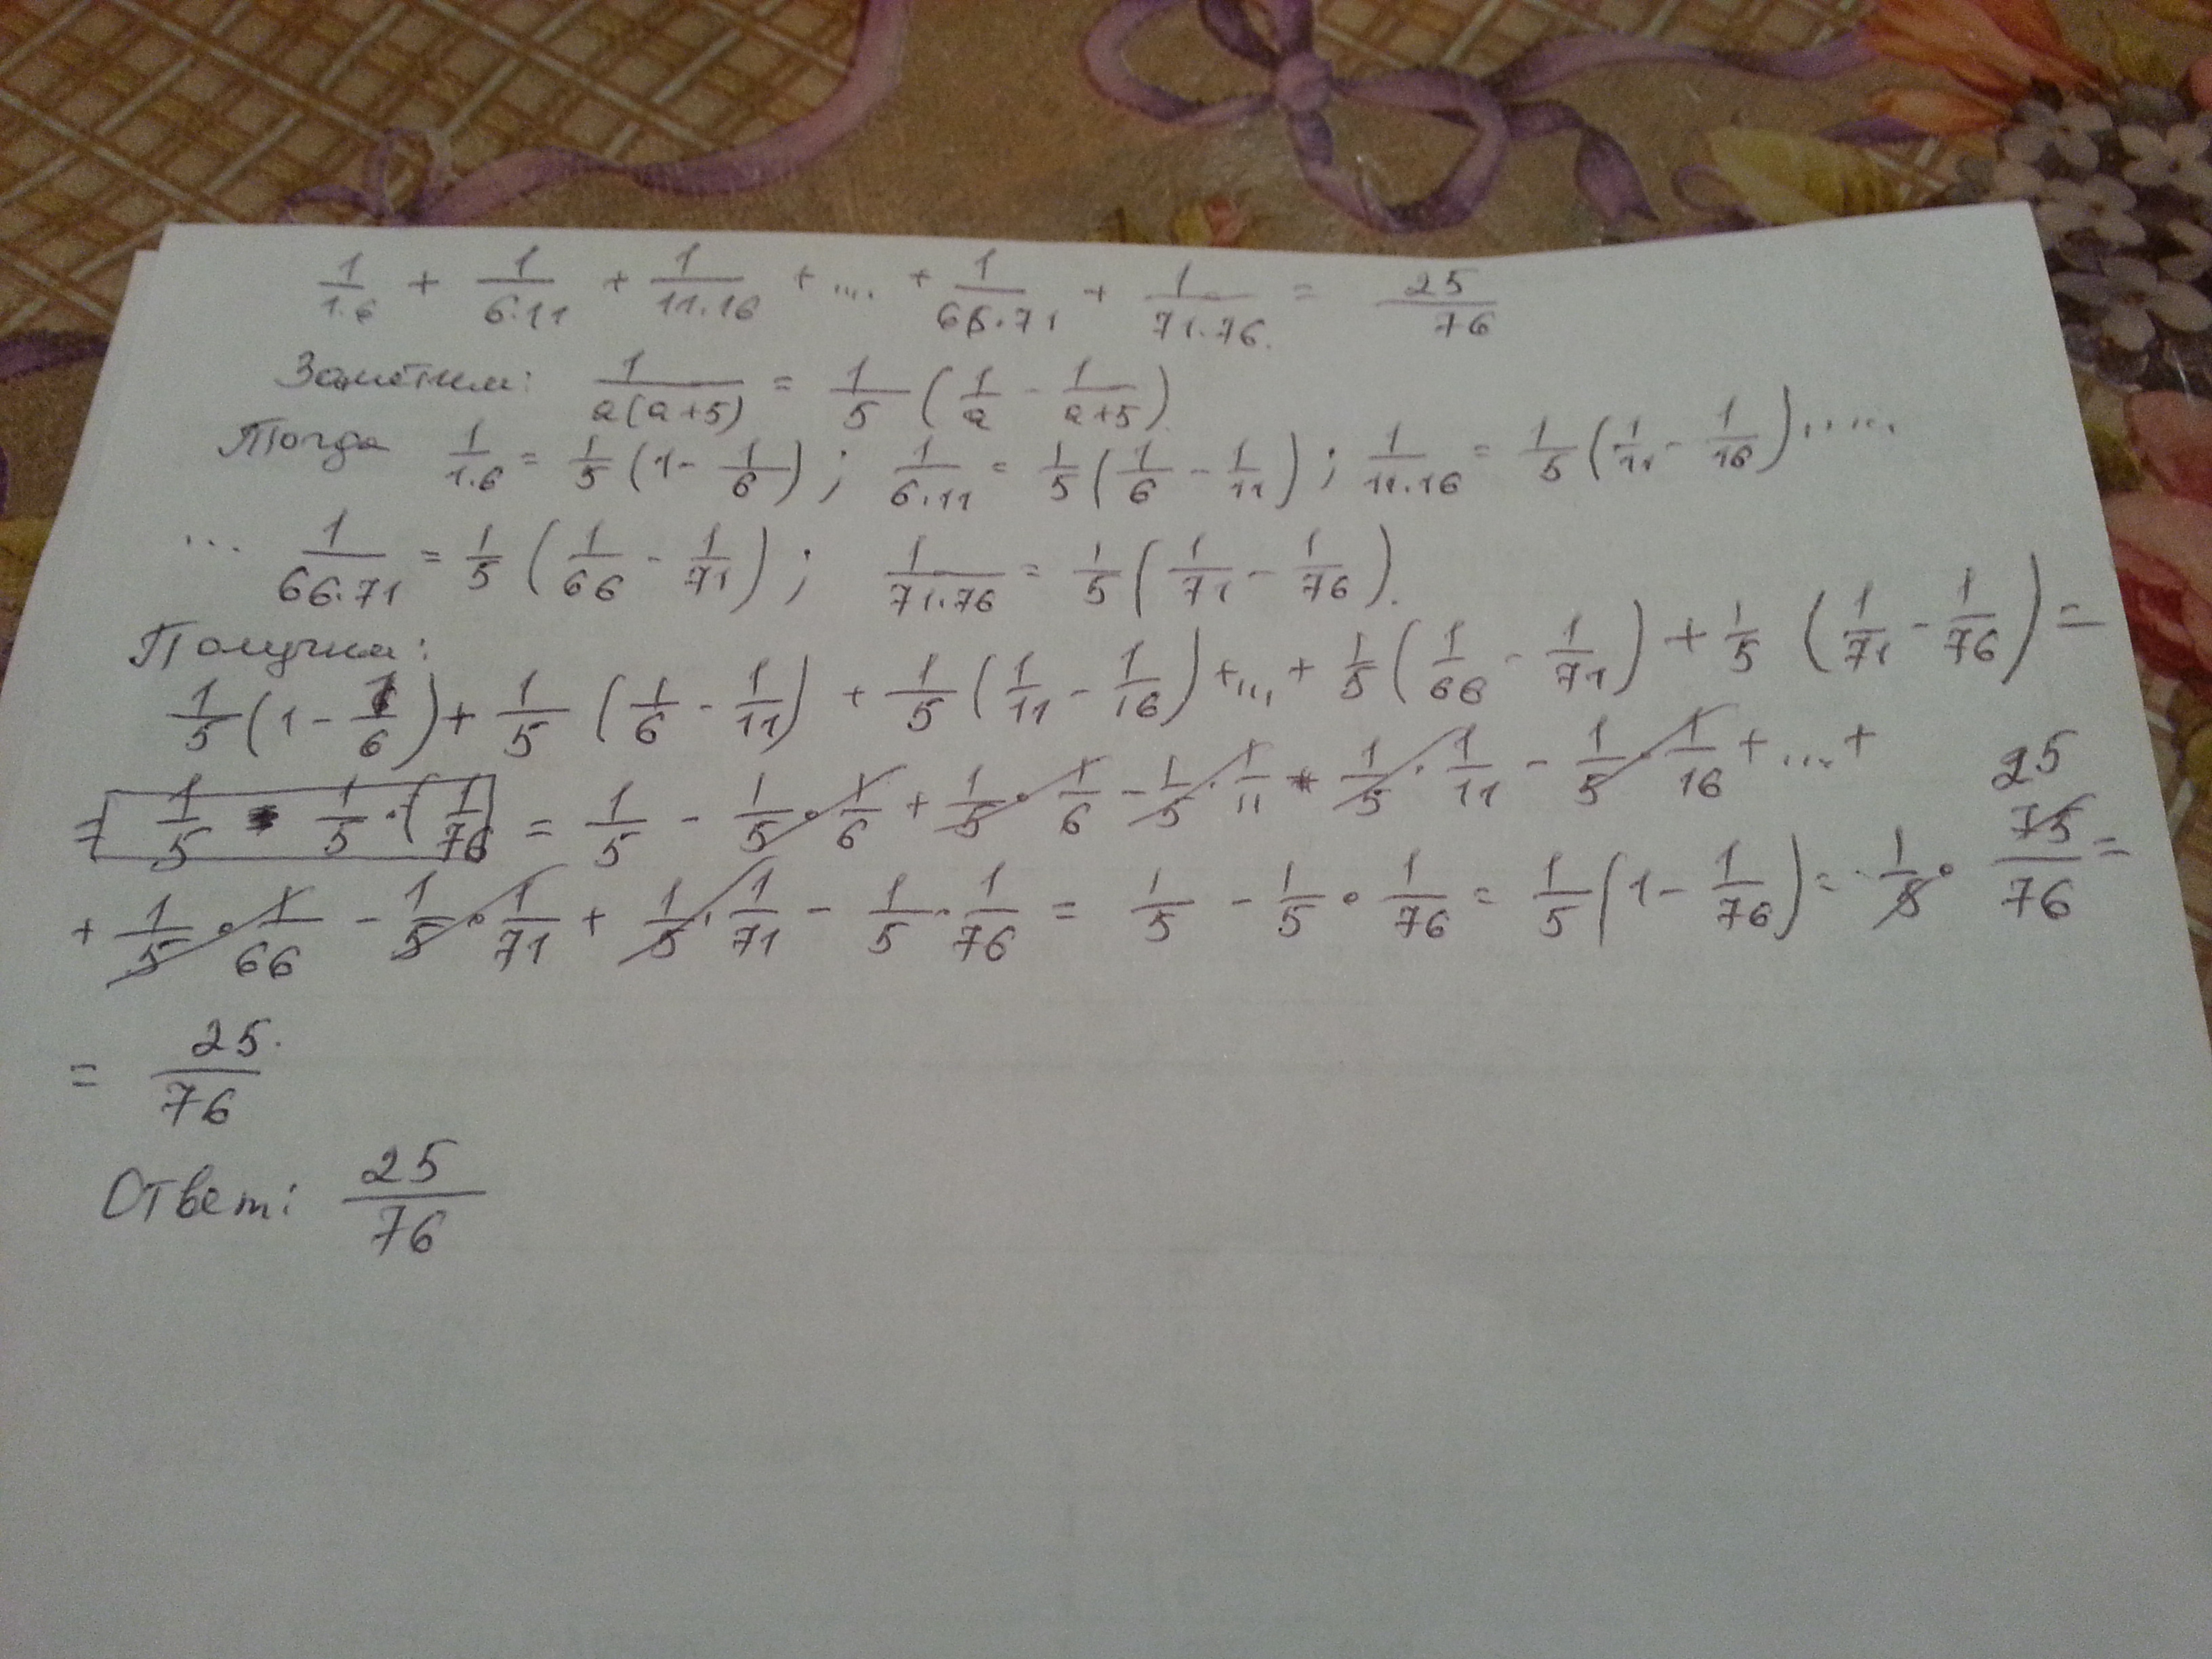 1/1·6 + 1/6·11 + 1/11·16 + .... + 1/66·71 + 1/71·76. = 25/76
Заметим: 1/a(a+5) = 1/5 (1/a - 1/a+5).
Тогда 1/1·6 = 1/5 (1 - 1/6) ; 1/6·11 = 1/5 (1/6 - 1/11) ; 1/11·16 = 1/5 (1/11 - 1/16) .....
... 1/66·71 = 1/5 (1/66 - 1/71) ; 1/71·76 = 1/5 (1/71 - 1/76).
Получим:
1/5 (1 - 1/6) + 1/5 (1/6 - 1/11) + 1/5 (1/11 - 1/16) + ... + 1/5 (1/66 - 1/71) + 1/5 (1/71 - 1/76) =
= 1/5 - 1/5 · (1/76 = 1/5 - 1/5 · 1/6 + 1/5 · 1/6 - 1/5 · 1/11 + 1/5 · 1/11 - 1/5 · 1/16 + ... +
+ 1/5 · 1/66 - 1/5 · 1/71 + 1/5 · 1/71 - 1/5 · 1/76 = 1/5 - 1/5 · 1/76 = 1/5 (1 - 1/76) = 1/5 · 25 75/76 =
= 25/76.
Ответ: 25/76